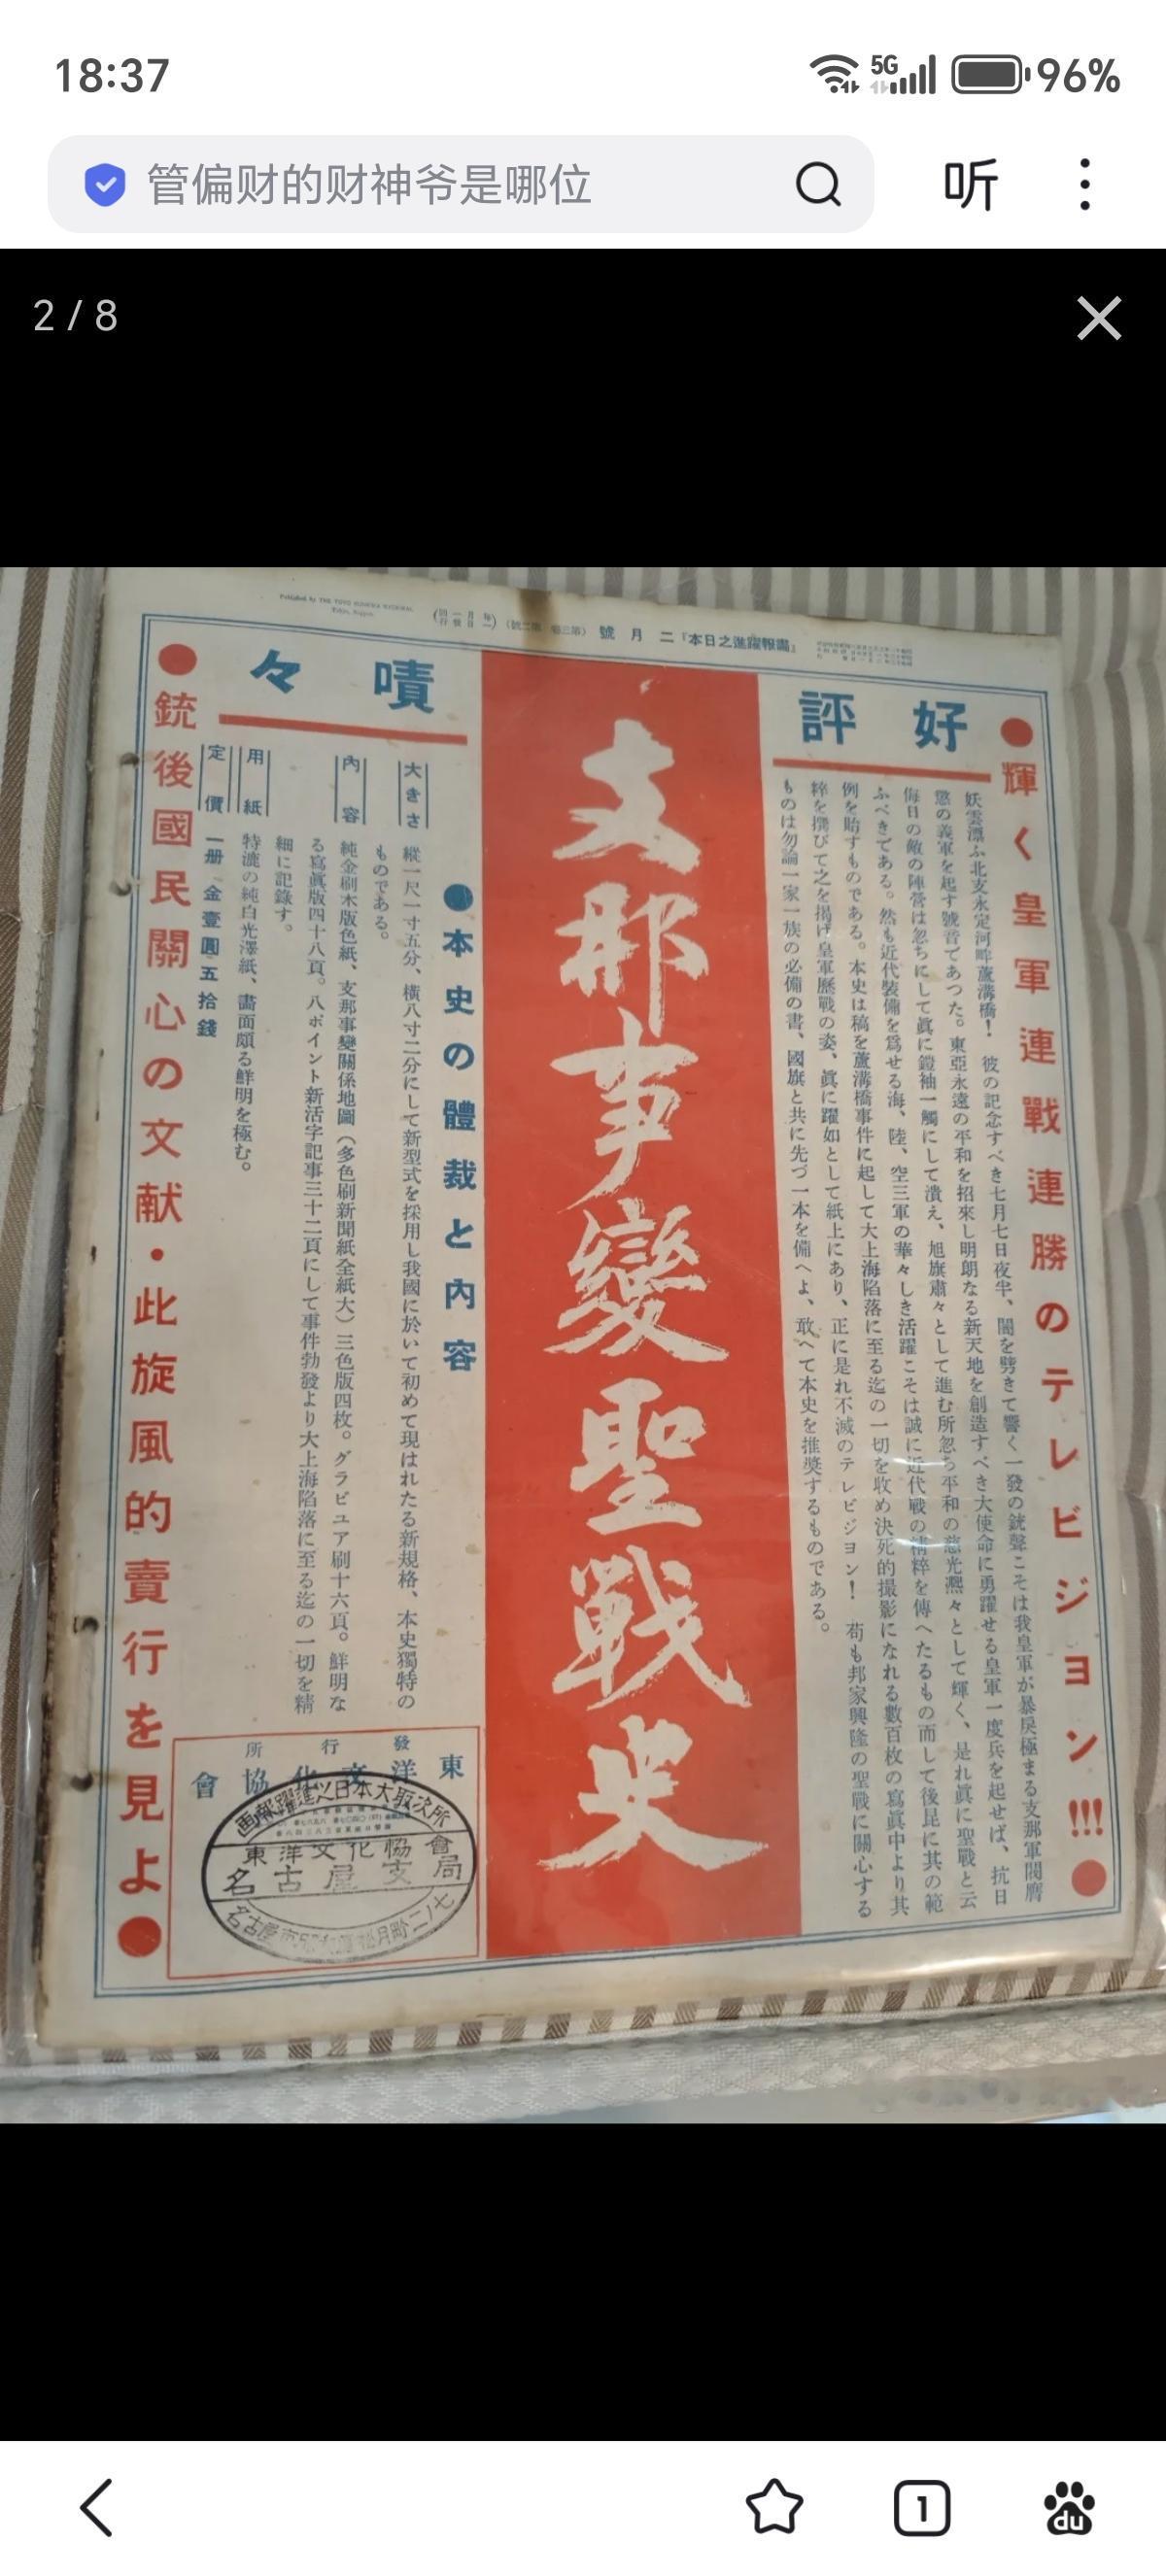 18:37
5G
96%
管偏财的财神爷是哪位
听
2 / 8
Published by THE TOYO BUNKWA KYOKAI,
Tokyo, Nippon.
『畵報躍進之日本』二月號
(第三卷 第二號)
(毎月一回一日發行)
●輝く皇軍連戰連勝のテレビジョン!!!●
好評
妖雲漂ふ北支永定河畔蘆溝橋! 彼の記念すべき七月七日夜半、闇を劈きて響く一發の銃聲こそは我皇軍が暴戾極まる支那軍閥膺
懲の義軍を起す號音であつた。東亞永遠の平和を招來し明朗なる新天地を創造すべき大使命に勇躍せる皇軍一度兵を起せば、抗日
侮日の敵の陣營は忽ちにして眞に鎧袖一觸にして潰え、旭旗肅々として進む所忽ち平和の慈光凞々として輝く、是れ眞に聖戰と云
ふべきである。然も近代裝備を爲せる海、陸、空三軍の華々しき活躍こそは誠に近代戰の精粹を傳へたるもの而して後昆に其の範
例を貽すものである。本史は稿を蘆溝橋事件に起して大上海陷落に至る迄の一切を收め決死的撮影になれる數百枚の寫眞中より其
粹を撰びて之を揭げ皇軍歷戰の姿、眞に躍如として紙上にあり、正に是れ不滅のテレビジョン! 苟も邦家興隆の聖戰に關心する
ものは勿論一家一族の必備の書、國旗と共に先づ一本を備へよ、敢へて本史を推奬するものである。
支那事變聖戰史
嘖々
●本史の體裁と內容
大きさ
縱一尺一寸五分、橫八寸二分にして新型式を採用し我國に於いて初めて現はれたる新規格、本史獨特の
ものである。
內容
純金刷木版色紙、支那事變關係地圖(多色刷新聞紙全紙大)三色版四枚。グラビュア刷十六頁。鮮明な
る寫眞版四十八頁。八ポイント新活字記事三十二頁にして事件勃發より大上海陷落に至る迄の一切を精
細に記錄す。
用紙
特漉の純白光澤紙、畵面頗る鮮明を極む。
定價
一册 金壹圓五拾錢
●銃後國民關心の文献・此旋風的賣行を見よ●
發行所
東洋文化協會
画報躍進之日本大取次所
東洋文化協會
名古屋支局
1
du